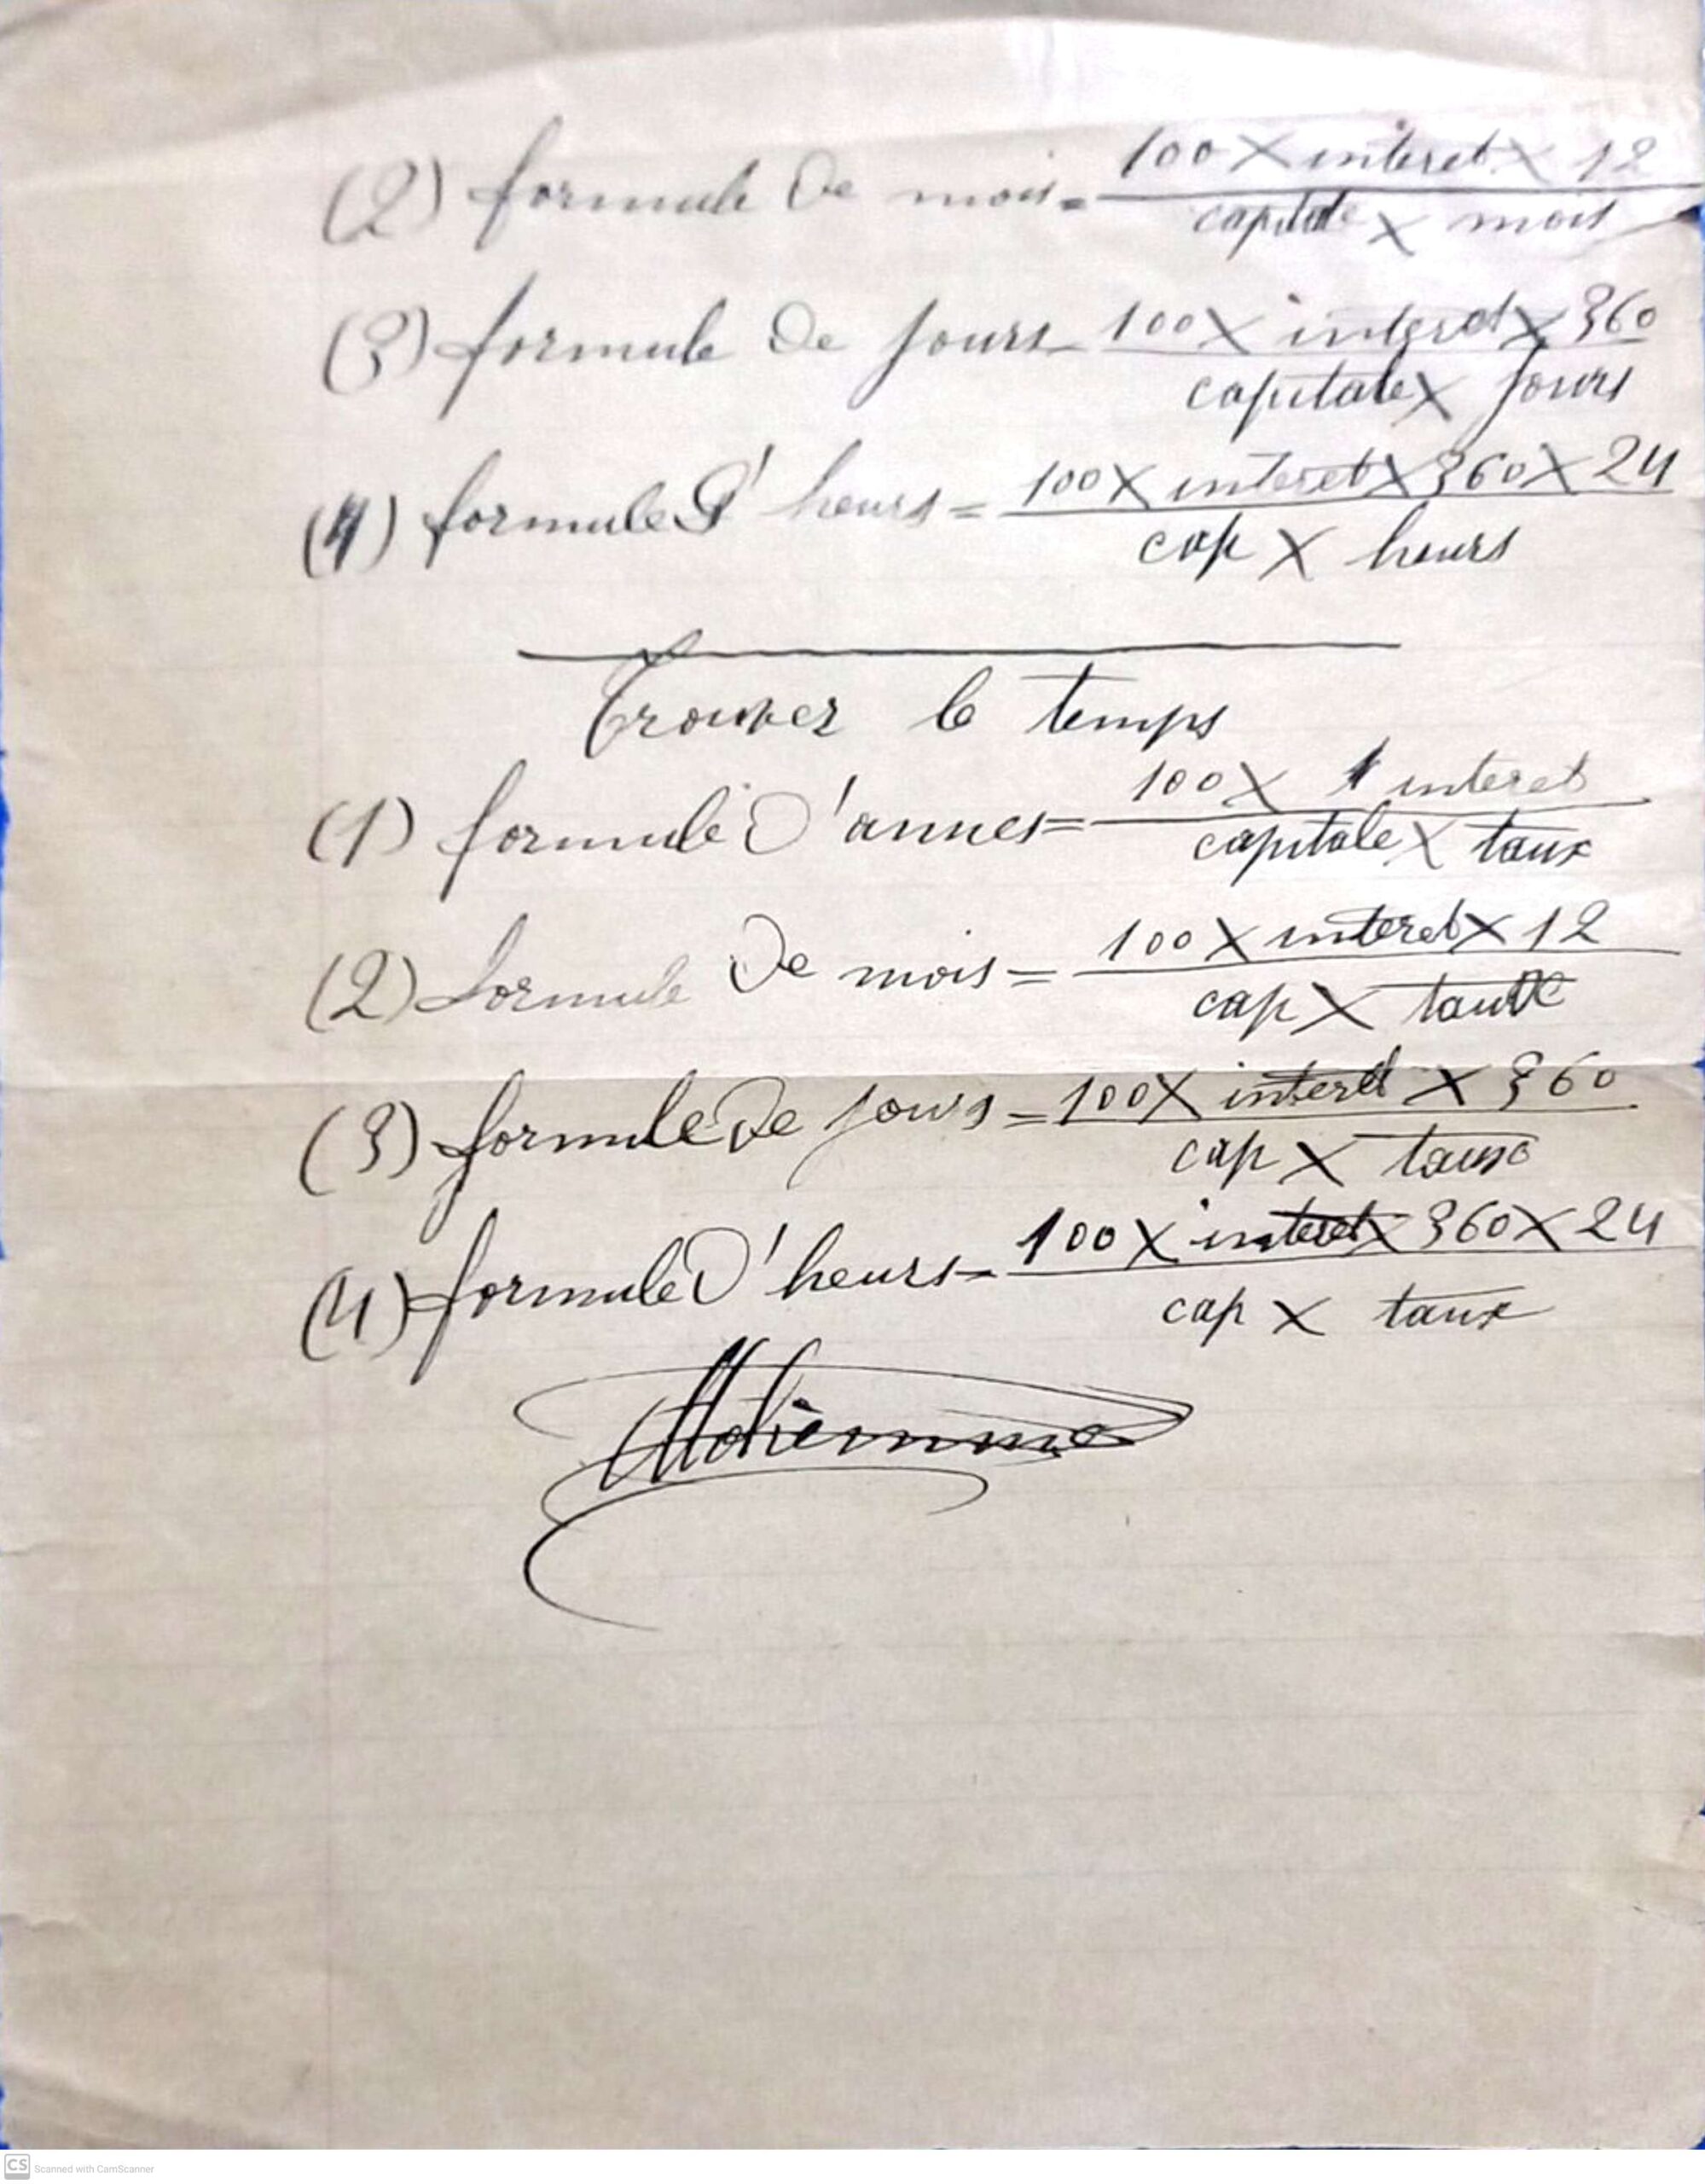 (2) formule De mois = 100 X interet X 12
capitale X mois
(3) formule De jours = 100 X interet X 360
capitale X jours
(4) formule D' heurs = 100 X interet X 360 X 24
cap X heurs
Trouver le temps
(1) formule D'annes = 100 X interet
capitale X taux
(2) formule De mois = 100 X interet X 12
cap X taux
(3) formule De jours = 100 X interet X 360
cap X taux
(4) formule D'heurs = 100 X interet X 360 X 24
cap X taux
CS Scanned with CamScanner